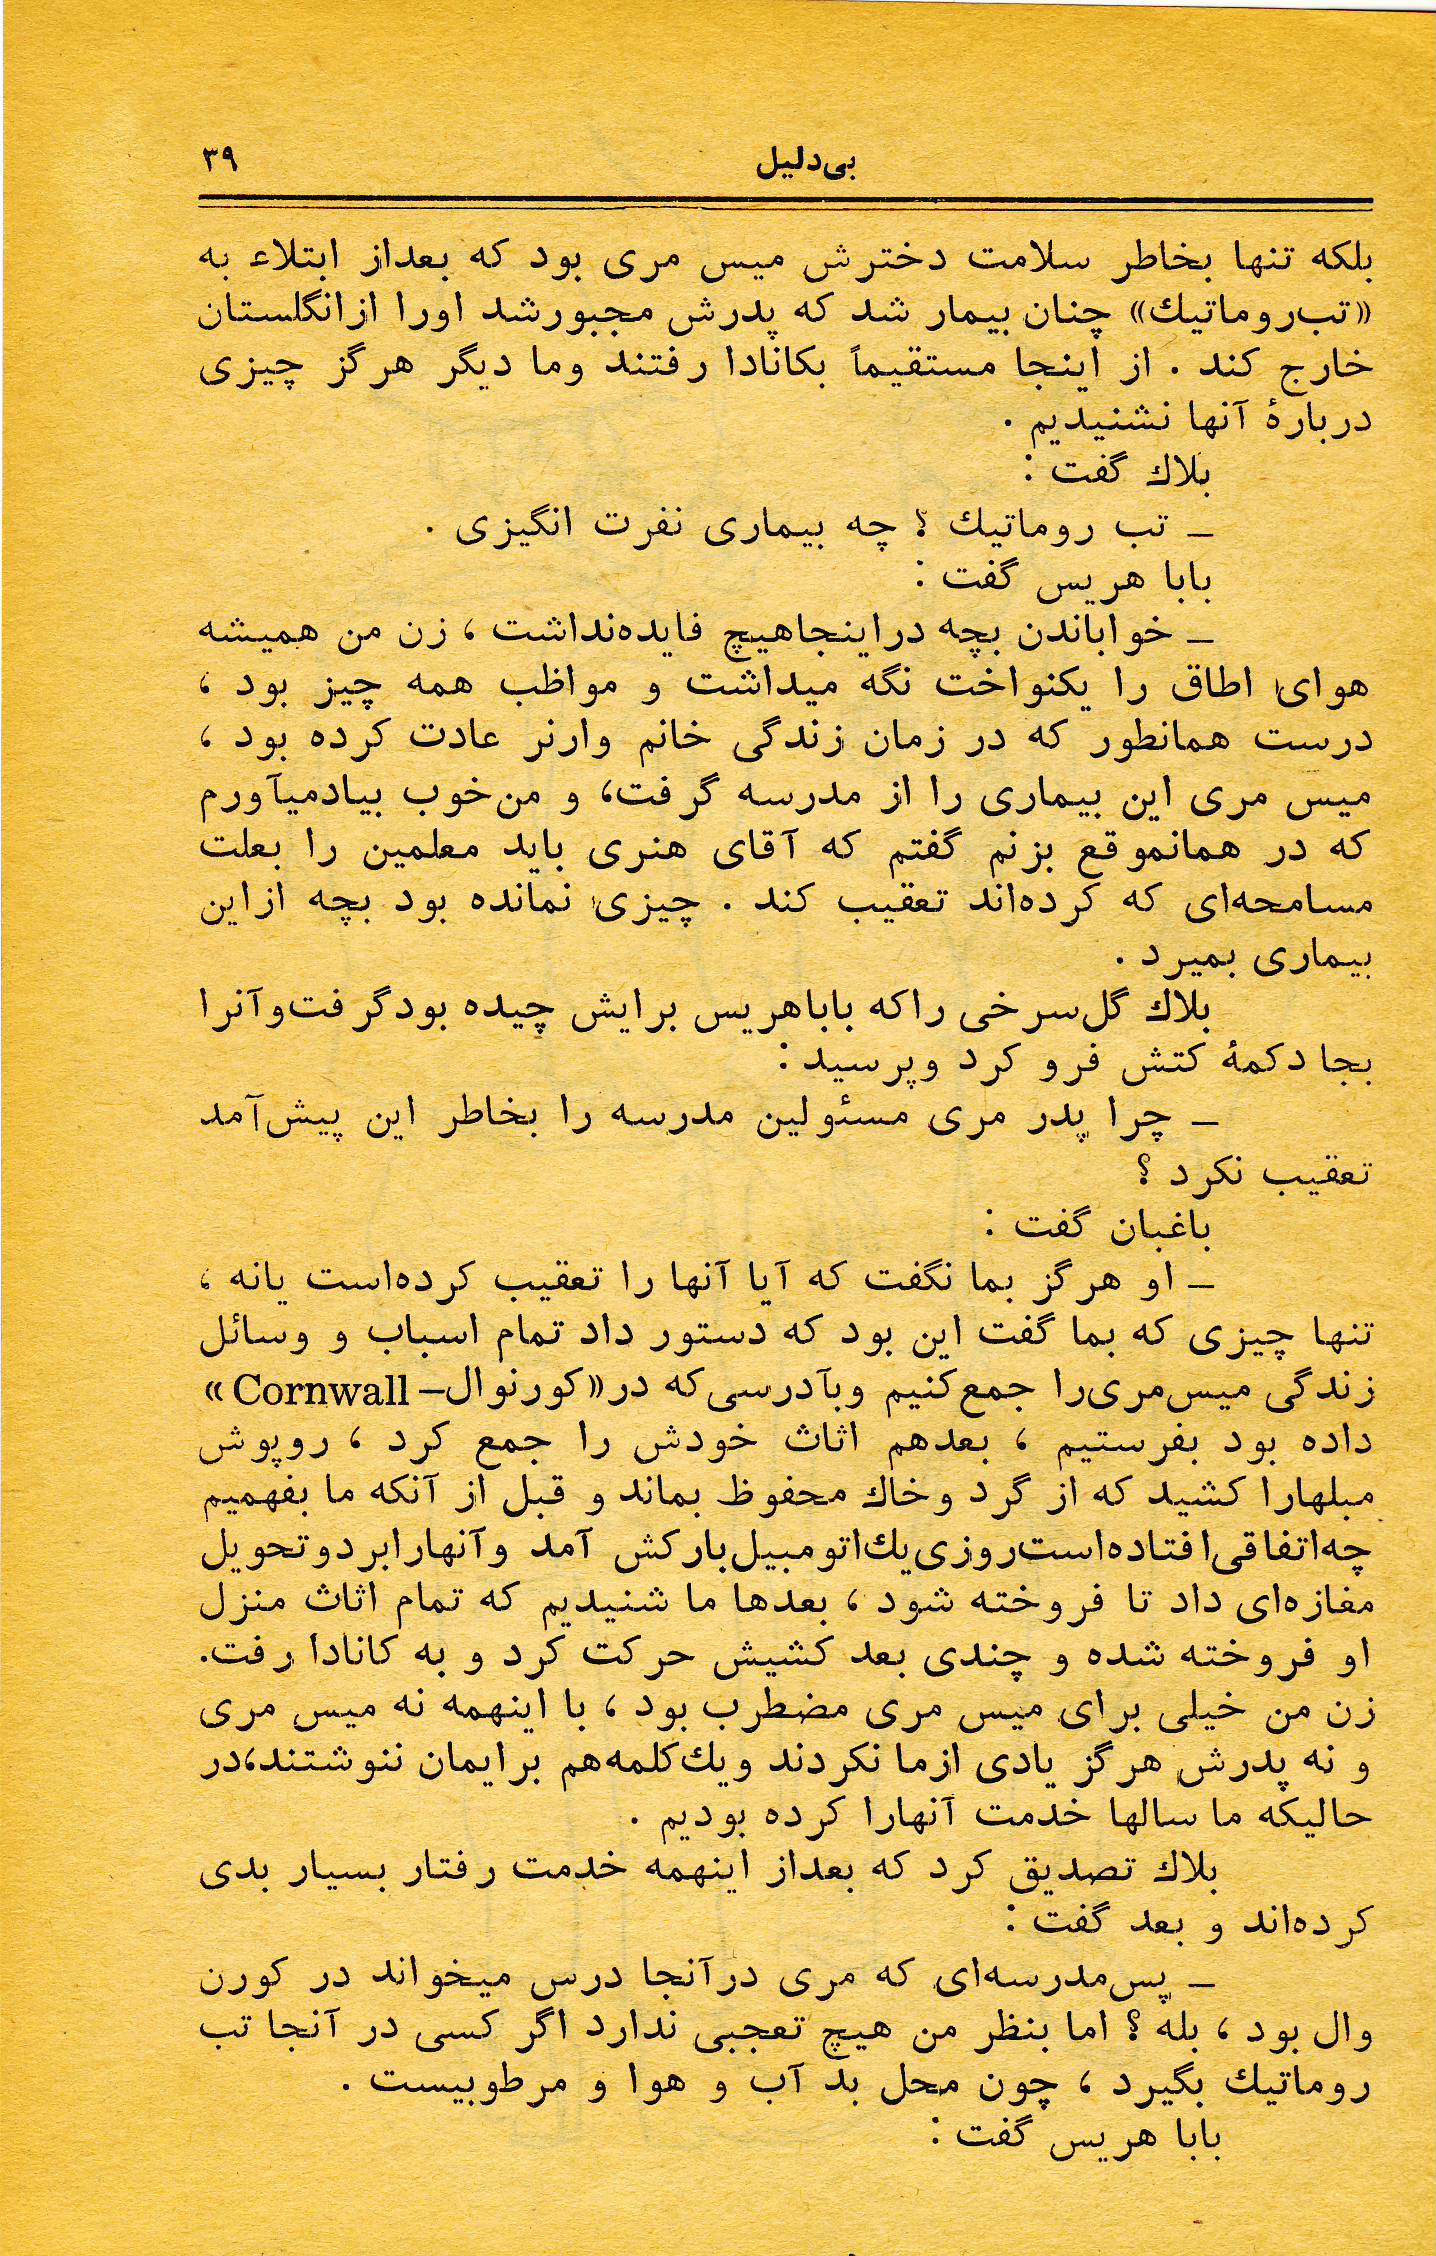 بی‌دلیل
۳۹
بلکه تنها بخاطر سلامت دخترش میس مری بود که بعداز ابتلاء به
«تب‌روماتیك» چنان بیمار شد که پدرش مجبورشد اورا ازانگلستان
خارج کند . از اینجا مستقیماً بکانادا رفتند وما دیگر هرگز چیزی
دربارهٔ آنها نشنیدیم .
بلاك گفت :
ـ تب روماتیك ؟ چه بیماری نفرت انگیزی .
بابا هریس گفت :
ـ خواباندن بچه دراینجاهیچ فایده‌نداشت ، زن من همیشه
هوای اطاق را یکنواخت نگه میداشت و مواظب همه چیز بود ،
درست همانطور که در زمان زندگی خانم وارنر عادت کرده بود ،
میس مری این بیماری را از مدرسه گرفت، و من‌خوب بیادمیآورم
که در همانموقع بزنم گفتم که آقای هنری باید معلمین را بعلت
مسامحه‌ای که کرده‌اند تعقیب کند . چیزی نمانده بود بچه ازاین
بیماری بمیرد .
بلاك گل‌سرخی راکه باباهریس برایش چیده بودگرفت‌وآنرا
بجا دکمهٔ کتش فرو کرد وپرسید :
ـ چرا پدر مری مسئولین مدرسه را بخاطر این پیش‌آمد
تعقیب نکرد ؟
باغبان گفت :
ـ او هرگز بما نگفت که آیا آنها را تعقیب کرده‌است یانه ،
تنها چیزی که بما گفت این بود که دستور داد تمام اسباب و وسائل
زندگی میس‌مری‌را جمع‌کنیم وبآدرسی‌که در«کورنوال– Cornwall»
داده بود بفرستیم ، بعدهم اثاث خودش را جمع کرد ، روپوش
مبلهارا کشید که از گرد وخاك محفوظ بماند و قبل از آنکه ما بفهمیم
چه‌اتفاقی‌افتاده‌است‌روزی‌یك‌اتومبیل‌بارکش آمد وآنهارابردوتحویل
مغازه‌ای داد تا فروخته شود ، بعدها ما شنیدیم که تمام اثاث منزل
او فروخته شده و چندی بعد کشیش حرکت کرد و به کانادا رفت.
زن من خیلی برای میس مری مضطرب بود ، با اینهمه نه میس مری
و نه پدرش هرگز یادی ازما نکردند ویك‌کلمه‌هم برایمان ننوشتند،در
حالیکه ما سالها خدمت آنهارا کرده بودیم .
بلاك تصدیق کرد که بعداز اینهمه خدمت رفتار بسیار بدی
کرده‌اند و بعد گفت :
ـ پس‌مدرسه‌ای که مری درآنجا درس میخواند در کورن
وال بود ، بله ؟ اما بنظر من هیچ تعجبی ندارد اگر کسی در آنجا تب
روماتیك بگیرد ، چون محل بد آب و هوا و مرطوبیست .
بابا هریس گفت :